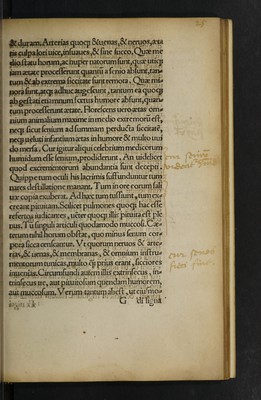 & duram. Arterias quoq; & uenas, & neruos, æta
tis culpa fieri uice, insuaues, & sine succo. Quæ me
dio statu horum, ac nuper natorum sunt, quæ utiq;
iam ætate processerunt quanta a senio absunt, tan
tum & ab extrema siccitate sunt remota. Quæ mi
nora sunt, atq; adhuc augescunt, tantum ea quoq;
ab gestati etiamnum fœtus humore absunt, quan
tum processerunt ætate. Florescens uero ætas om
nium animalium maxime in medio extremorū est,
neq; sicut senium ad summam perducta siccitatē,
neq; quasi infantium ætas in humore & multo uui
do mersa. Cur igitur aliqui celebrium medicorum
humidum esse senium, prodiderunt. An uidelicet
quod excrementorum abundantia sunt decepti.
Quippe tum oculi his lacrimis suffunduntur, tum
nares destillatione manant. Tum in ore eorum sali
uæ copia exuberat. Ad hæc tum tussiunt, tum ex-
creant pituitam. Scilicet pulmones quoq; hac esse
refertos iudicantes, uēter quoq; illis pituita est ple
nus. Tū singuli articuli quodammodo muccosi. Cæ-
terum nihil horum obstat, quo minus senum cor-
pora sicca censeantur. Vt quorum neruos & arte-
rias, & uenas, & membranas, & omnium instru-
mentorum tunicas, multo q̄ prius erant, sicciores
inuenias. Circumfundi autem illis extrinsecus, in-
trinsecus ue, aut pituitosum quendam humorem,
aut muccosum. Verum tantum abest, ut eiusmo-
G